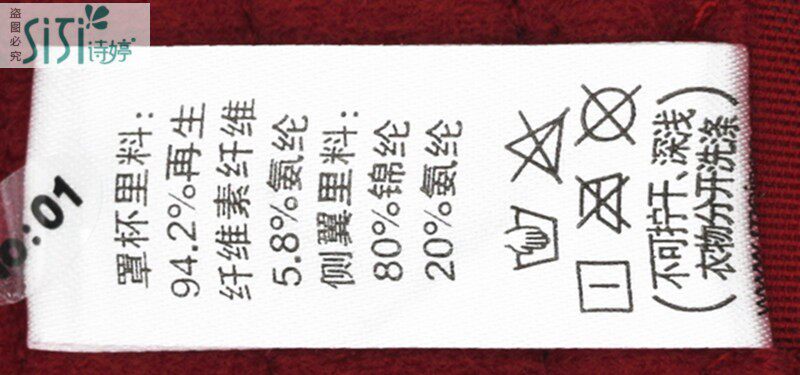 盗图必究
SiSi诗婷
罩杯里料:
94.2%再生
纤维素纤维
5.8%氨纶
侧翼里料:
80%锦纶
20%氨纶
(不可拧干、深浅
衣物分开洗涤)
o:01